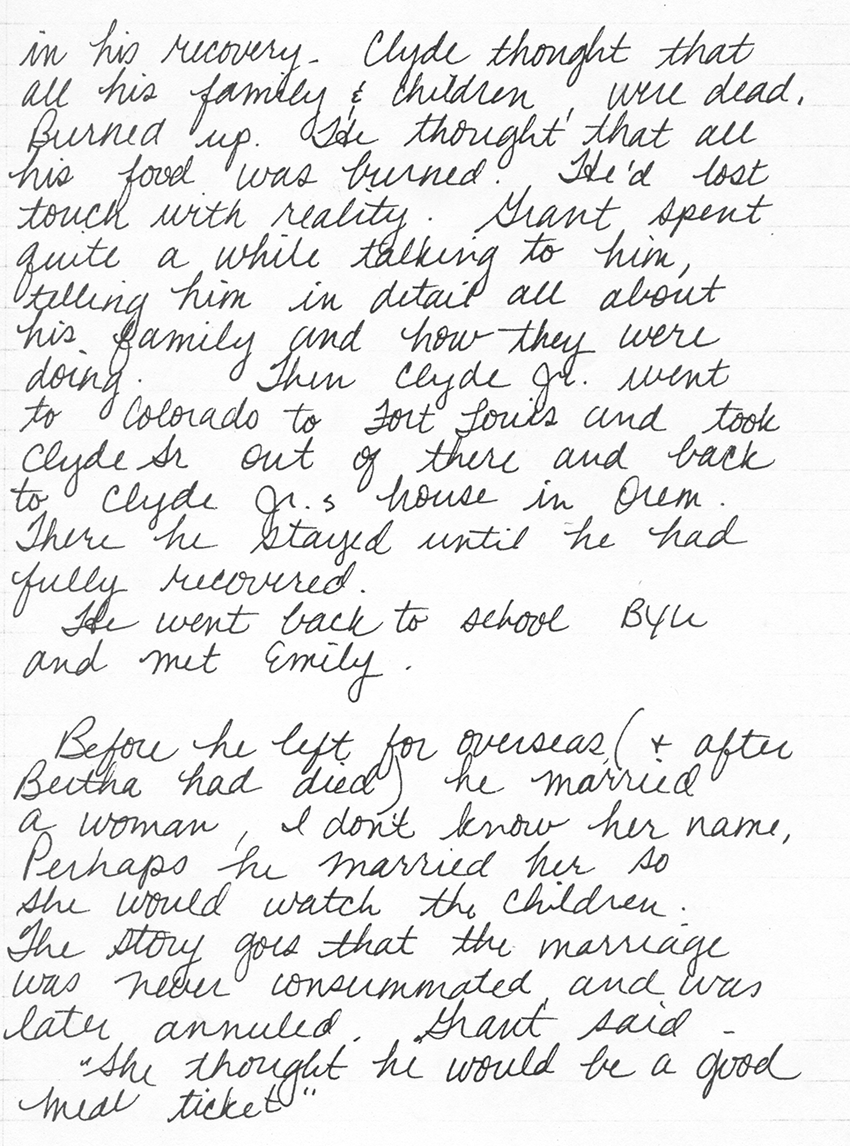 in his recovery. Clyde thought that
all his family & children, were dead.
Burned up. He thought that all
his food was burned. He'd lost
touch with reality. Grant spent
quite a while talking to him,
telling him in detail all about
his family and how they were
doing. Then Clyde Jr. went
to Colorado to Fort Louis and took
Clyde Sr out of there and back
to Clyde Jr.s house in Orem.
There he stayed until he had
fully recovered.
He went back to school BYU
and met Emily.
Before he left for overseas (+ after
Bertha had died) he married
a woman, I don't know her name,
Perhaps he married her so
she would watch the children.
The story goes that the marriage
was never consummated and was
later annuled. Grant said -
"She thought he would be a good
meal ticket"